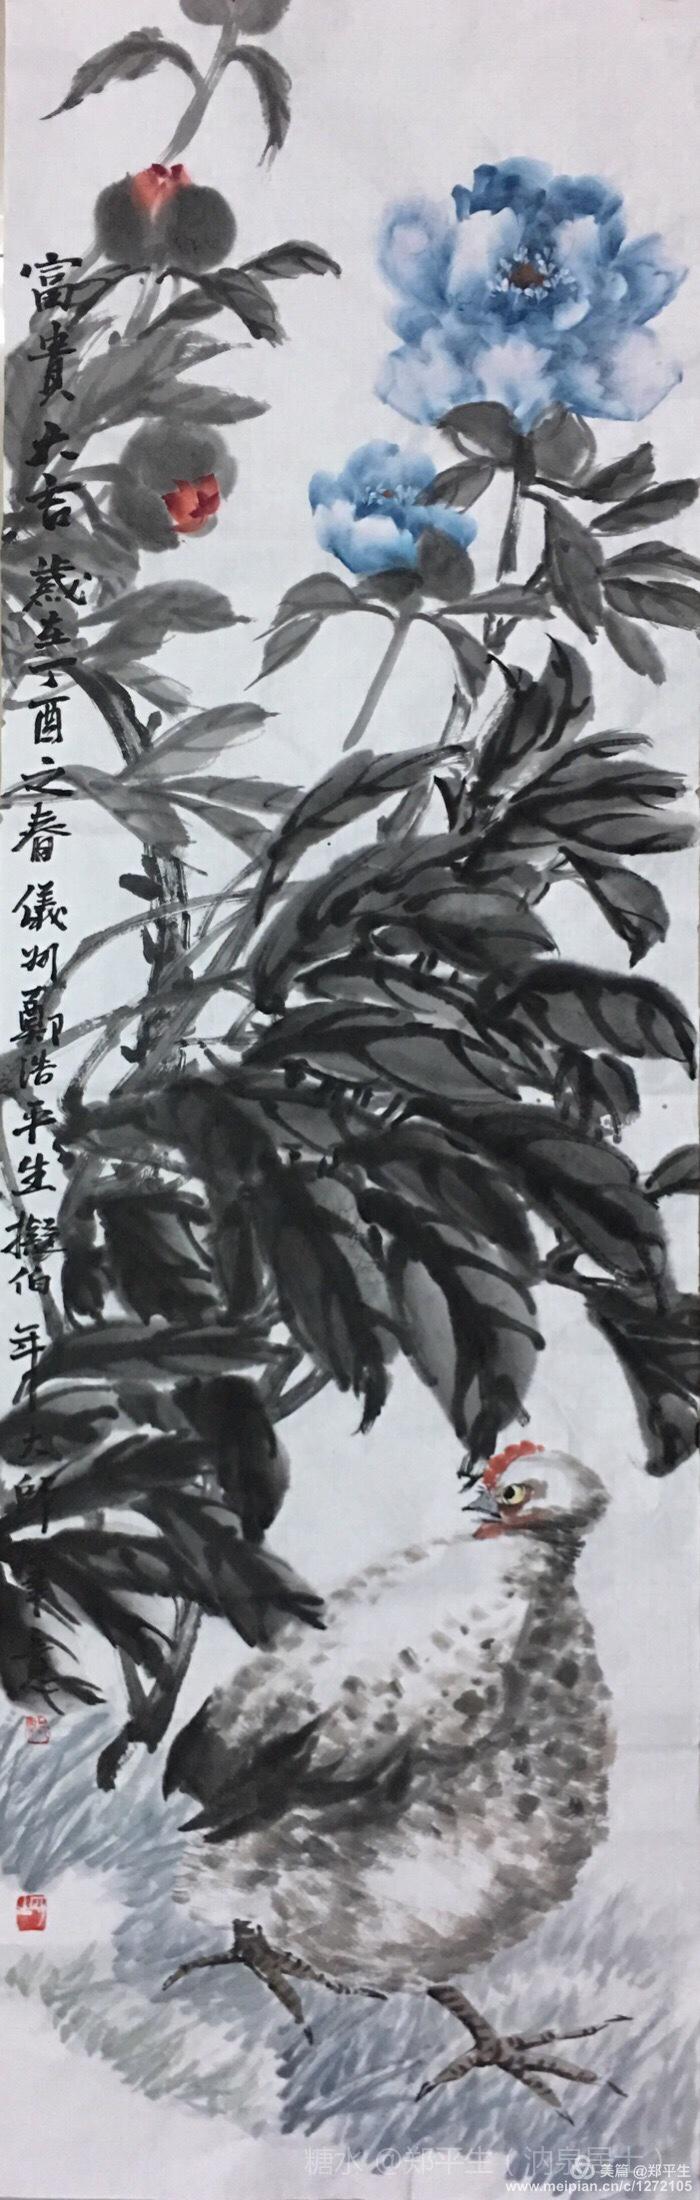 富貴大吉 歲在丁酉之春 儀州鄭浩平生擬伯年大師筆意
糖水 @郑平生（汭泉居士）
美篇 @郑平生
www.meipian.cn/c/1272105